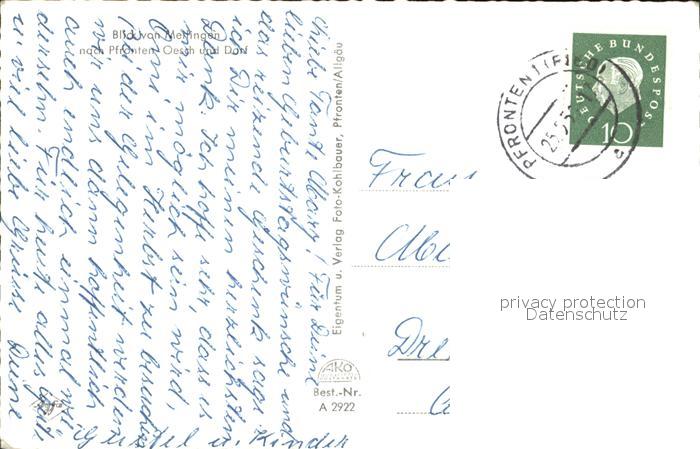 Blick von Meilingen
nach Pfronten-Oesch und Dorf
Liebe Tante Mary! Für Deine
lieben Geburtstagswünsche und
das reizende Geschenk sage
ich Dir meinen herzlichsten
Dank. Ich hoffe sehr, dass es
mir möglich sein wird,
Omi im Herbst zu besuchen
bei der Gelegenheit werden
wir uns dann hoffentlich
auch endlich einmal wi-
dersehn. Für heute alles Gute
u. viel liebe Grüsse Deine
Gustel u. Kinder
Eigentum u. Verlag Foto-Kohlbauer, Pfronten/Allgäu
AKO
Best.-Nr.
A 2922
PFRONTEN 1 (RIED)
DEUTSCHE BUNDESPOST
10
Frau
Dre
privacy protection
Datenschutz